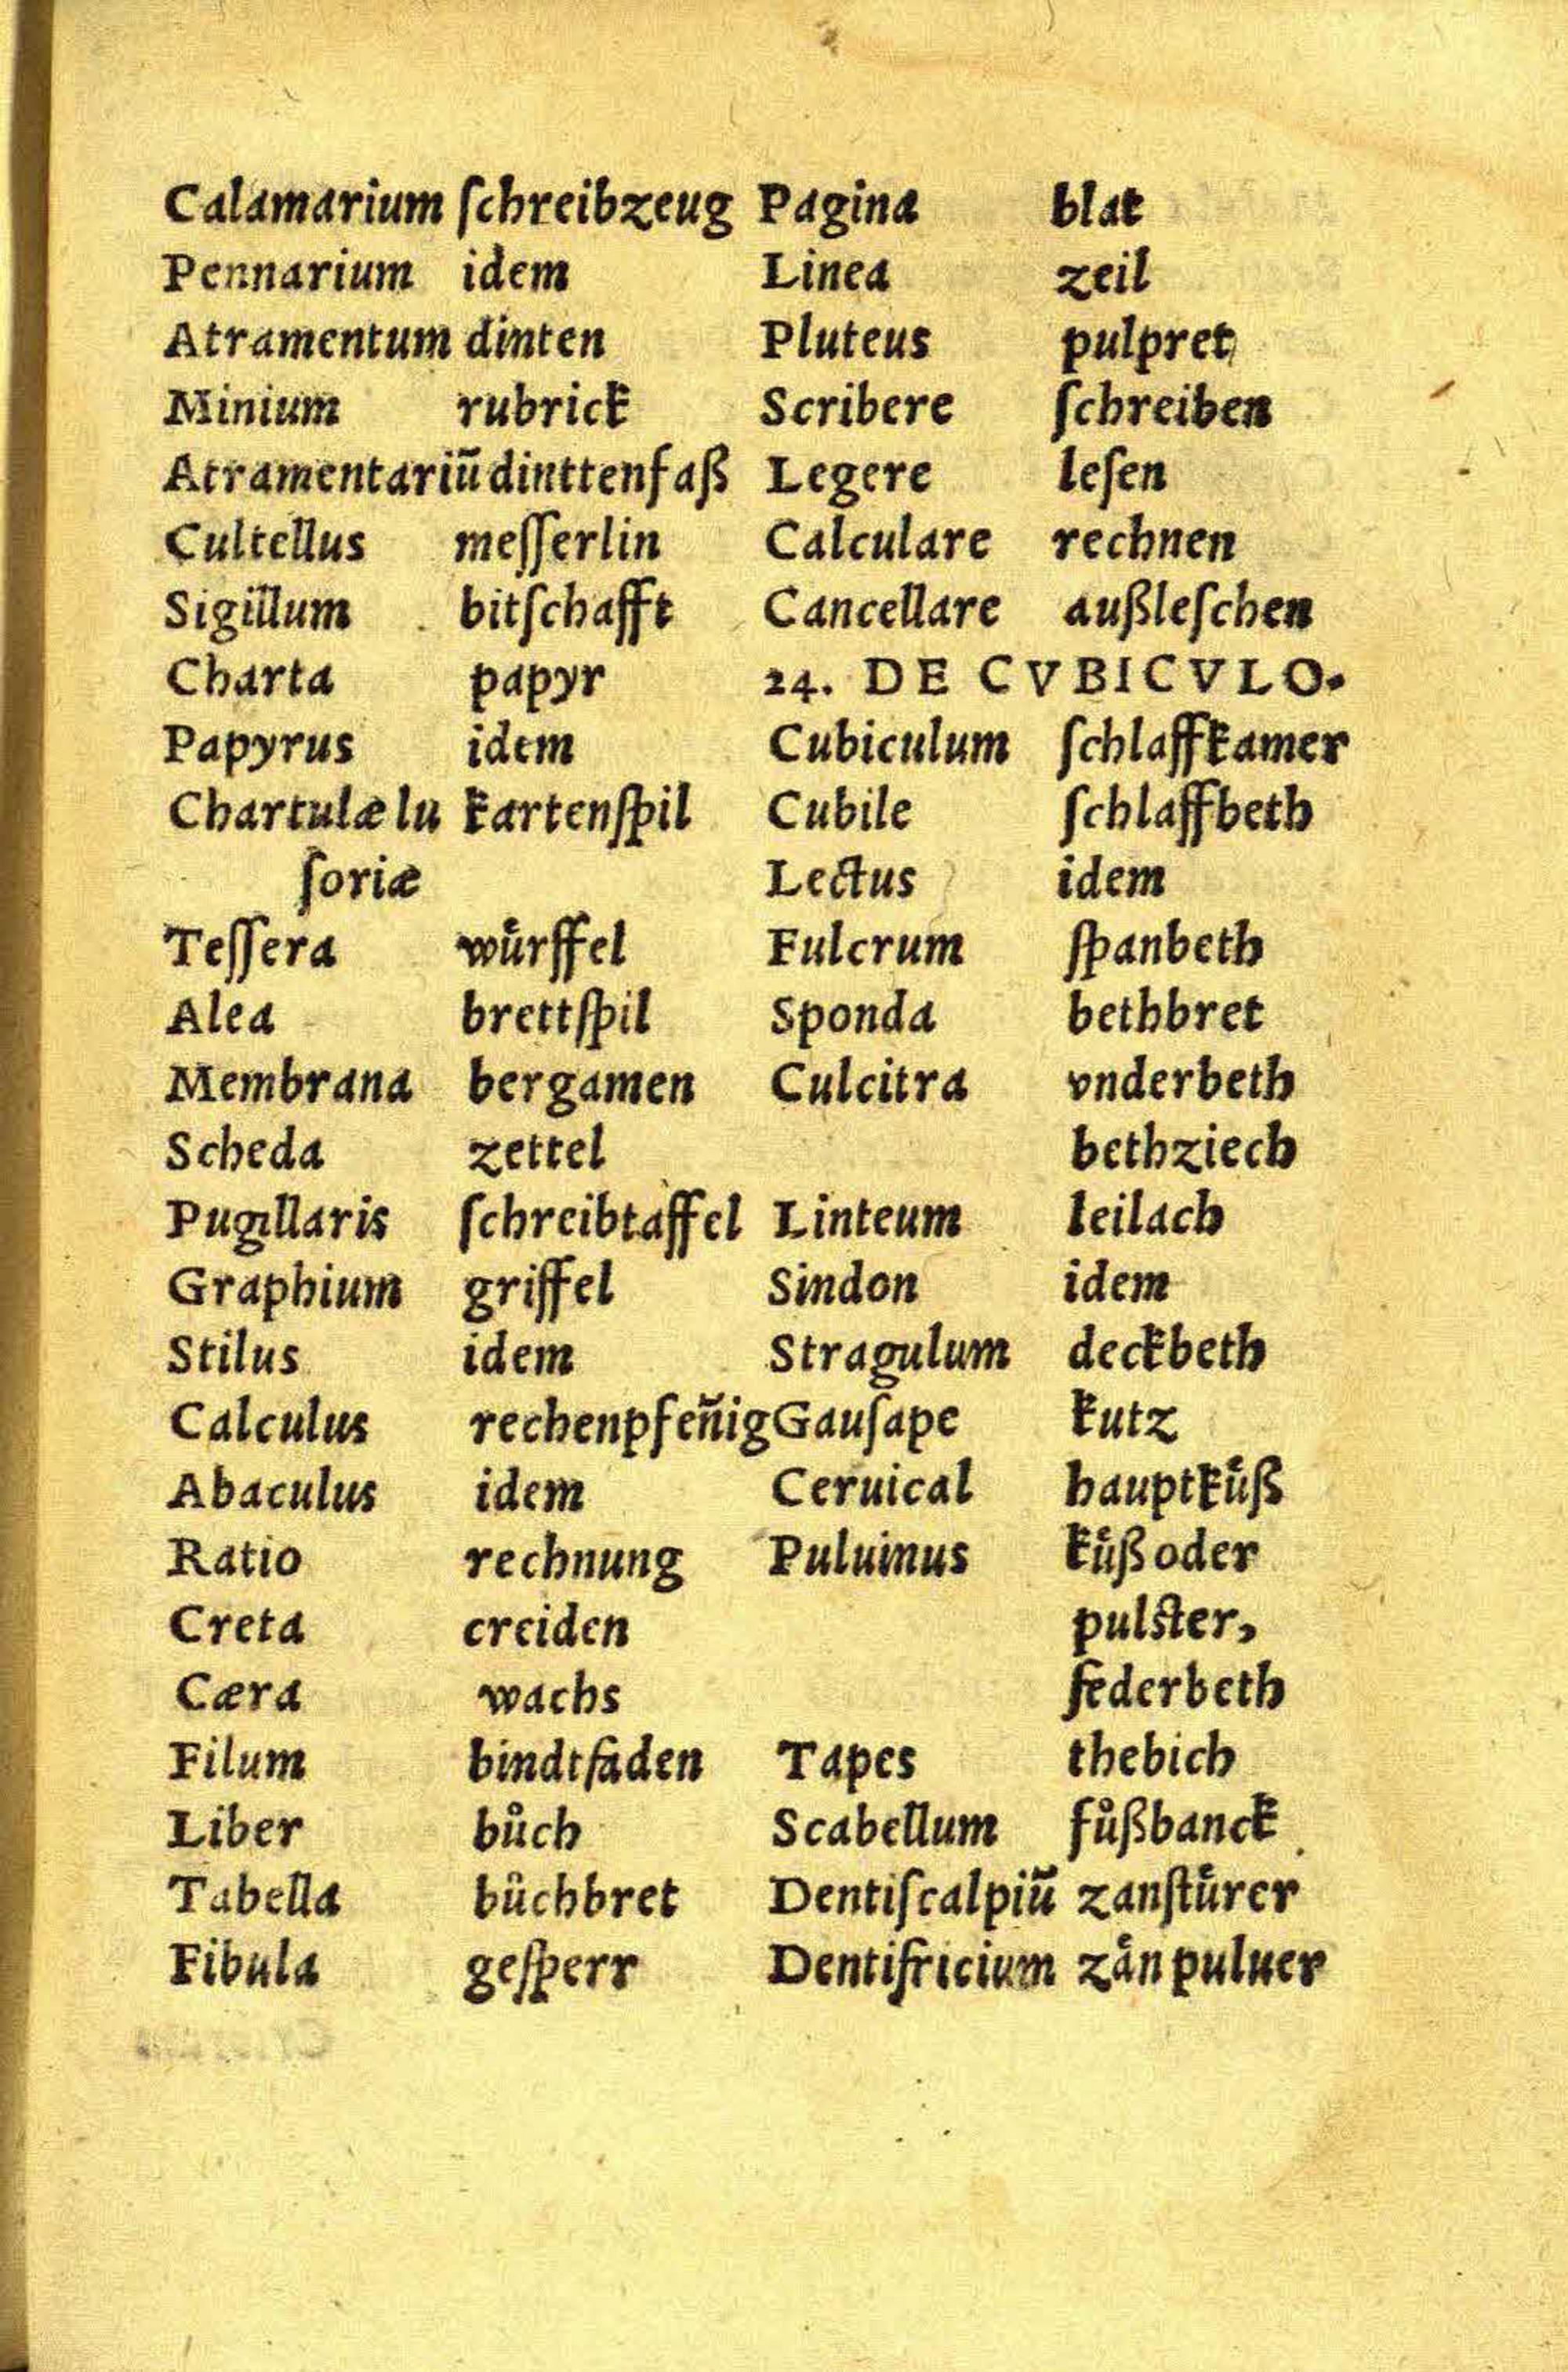 Calamarium ſchreibzeug
Pennarium idem
Atramentum dinten
Minium rubrick
Atramentariū dinttenfaß
Cultellus meſſerlin
Sigillum bitſchafft
Charta papyr
Papyrus idem
Chartulæ lu kartenſpil
ſoriæ
Teſſera wuͤrffel
Alea brettſpil
Membrana bergamen
Scheda zettel
Pugillaris ſchreibtaffel
Graphium griffel
Stilus idem
Calculus rechenpfen̄ig
Abaculus idem
Ratio rechnung
Creta creiden
Cæra wachs
Filum bindtfaden
Liber bůch
Tabella bůchbret
Fibula geſperr
Pagina blat
Linea zeil
Pluteus pulpret
Scribere ſchreiben
Legere leſen
Calculare rechnen
Cancellare außleſchen
24. DE CVBICVLO.
Cubiculum ſchlaffkamer
Cubile ſchlaffbeth
Lectus idem
Fulcrum ſpanbeth
Sponda bethbret
Culcitra vnderbeth
bethziech
Linteum leilach
Sindon idem
Stragulum deckbeth
Gauſape kutz
Ceruical hauptkuͤß
Puluinus kuͤß oder
pulſter,
federbeth
Tapes thebich
Scabellum fůßbanck
Dentiſcalpiū zanſtuͤrer
Dentifricium zaͤn puluer